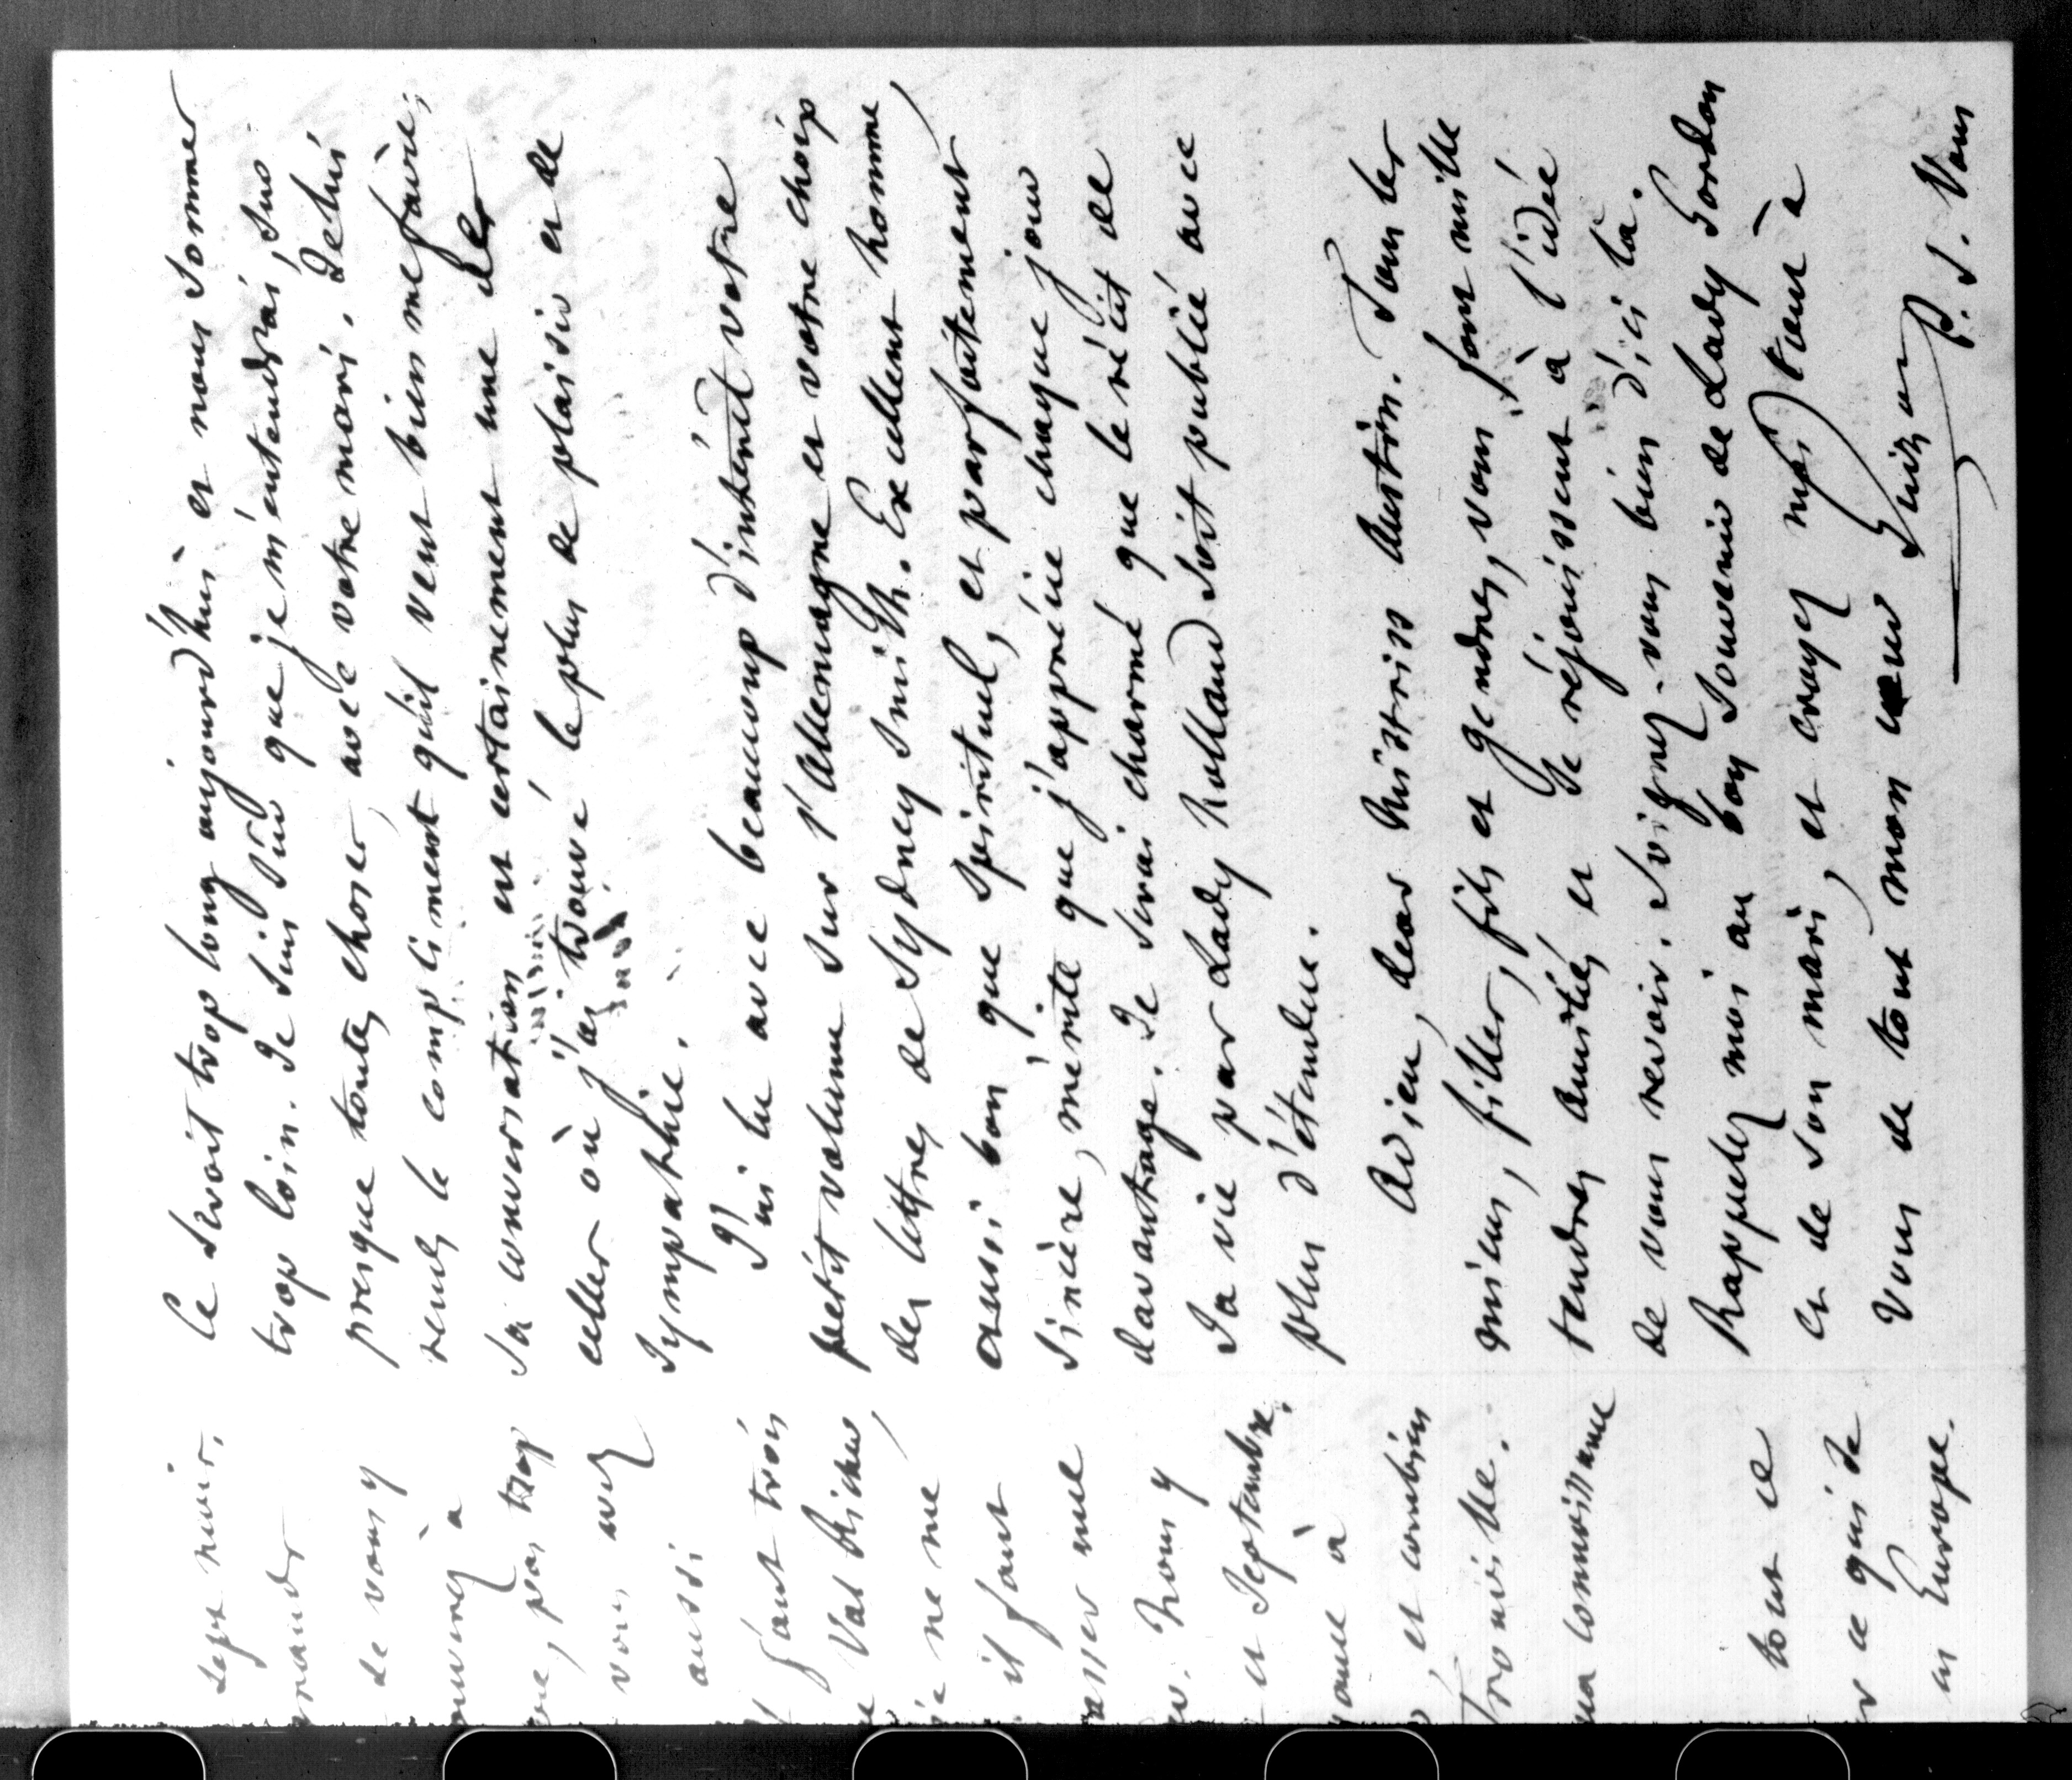 sept mois,
mande
de vous y
ouvrez à
vre, pas trop
vous, avez
aussi
faut trois
Val Richer,
je ne me
il faut
asser une
Nous y
et Septembre,
à
, et combien
Trouville.
ma connoissance
tout ce
ce qui se
en Europe.
Ce seroit trop long aujourd'hui et nous sommes
trop loin. Je suis sûr que je m'entendrai, sur
presque toutes choses, avec votre mari. Je lui
rends le compliment qu'il veut bien me faire;
sa conversation est certainement une des
celles où j'ai trouvé le plus de plaisir et de
sympathie.
J'ai lu avec beaucoup d'intérêt votre
petit volume sur l'Allemagne et votre choix
des lettres de Sydney Smith. Excellent homme,
aussi bon que spirituel, et parfaitement
sincère, mérite que j'apprécie chaque jour
davantage. Je serai charmé que le récit de
sa vie par Lady Holland soit publié avec
plus d'étendue.
Adieu, dear Mistriss Austin. Tous les
miens, filles, fils et gendres, vous font mille
tendres amitiés et se réjouissent à l'idée
de vous revoir. Soignez-vous bien d'ici là.
Rappelez moi au bon souvenir de Lady Gordon
et de son mari, et croyez moi tout à
vous de tout mon cœur Guizot
P. S. Vous